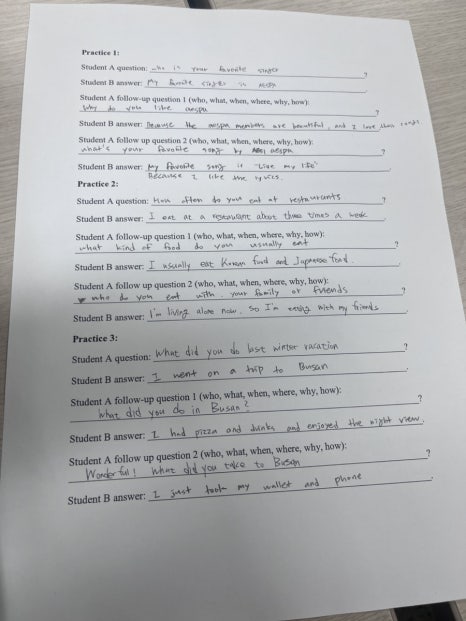 Practice 1:
Student A question: who is your favorite singer ?
Student B answer: My favorite singer is aespa
Student A follow-up question 1 (who, what, when, where, why, how):
Why do you like aespa ?
Student B answer: Because the aespa members are beautiful, and I love their songs
Student A follow up question 2 (who, what, when, where, why, how):
what's your favorite song by aespa ?
Student B answer: My favorite song is "Live my life"
Because I like the lyrics.
Practice 2:
Student A question: How often do you eat at restaurants ?
Student B answer: I eat at a restaurant about three times a week.
Student A follow-up question 1 (who, what, when, where, why, how):
what kind of food do you usually eat ?
Student B answer: I usually eat Korean food and Japanese food.
Student A follow up question 2 (who, what, when, where, why, how):
who do you eat with. your family or friends ?
Student B answer: I'm living alone now. so I'm eating with my friends.
Practice 3:
Student A question: What did you do last winter vacation ?
Student B answer: I went on a trip to Busan.
Student A follow-up question 1 (who, what, when, where, why, how):
What did you do in Busan? ?
Student B answer: I had pizza and drinks and enjoyed the night view.
Student A follow up question 2 (who, what, when, where, why, how):
Wonderful! What did you take to Busan ?
Student B answer: I just took my wallet and phone.